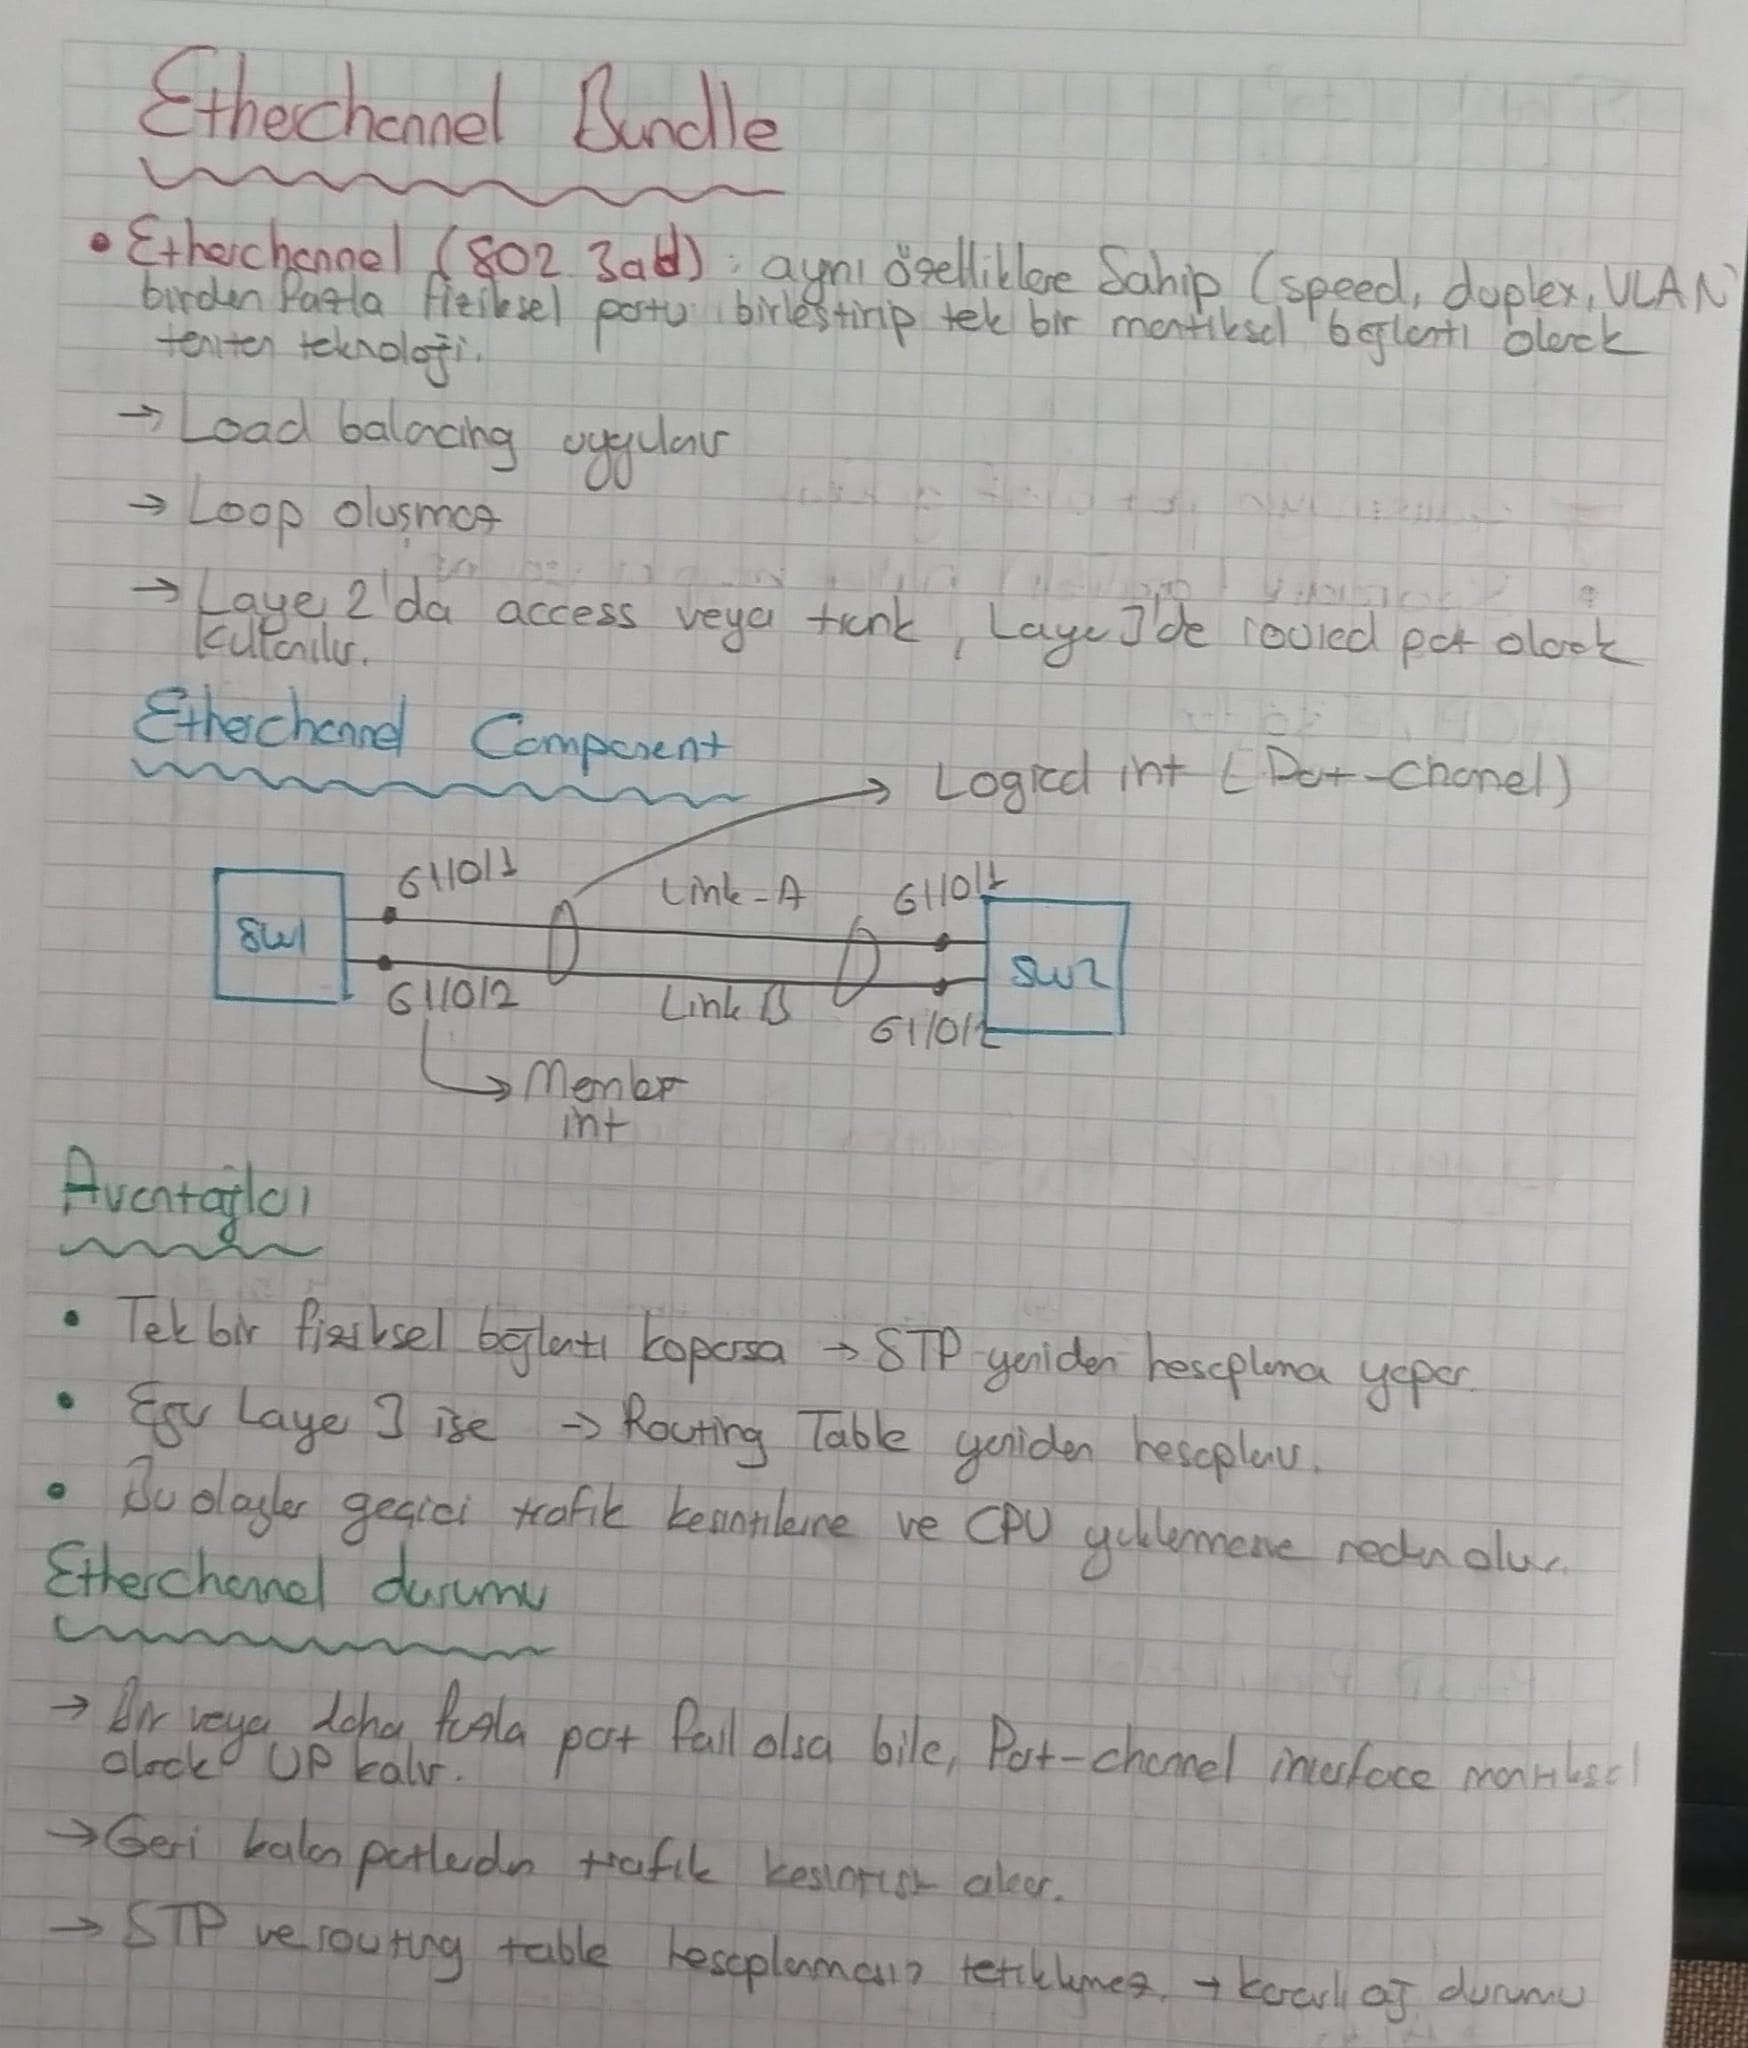 Etherchannel Bundle
• Etherchannel (802.3ad) : aynı özelliklere Sahip (speed, duplex, VLAN)
birden fazla fiziksel portu birleştirip tek bir mantıksal bağlantı olarak
tanıtan teknoloji.
→ Load balancing uygular
→ Loop oluşmaz
→ Layer 2'da access veya trunk, Layer 3'de routed port olarak
kullanılır.
Etherchannel Component
Logical int (Port-Channel)
G1/0/1 Link-A G1/0/1
SW1 SW2
G1/0/2 Link B G1/0/2
Member
int
Avantajları
• Tek bir fiziksel bağlantı koparsa → STP yeniden hesaplama yapar.
• Eğer Layer 3 ise → Routing Table yeniden hesaplanır.
• Bu olaylar geçici trafik kesintilerine ve CPU yüklenmesine neden olur.
Etherchannel durumu
→ Bir veya daha fazla port fail olsa bile, Port-channel interface mantıksal
olarak UP kalır.
→ Geri kalan portlardan trafik kesintisiz akar.
→ STP ve routing table hesaplanması tetiklenmez. → kararlı ağ durumu